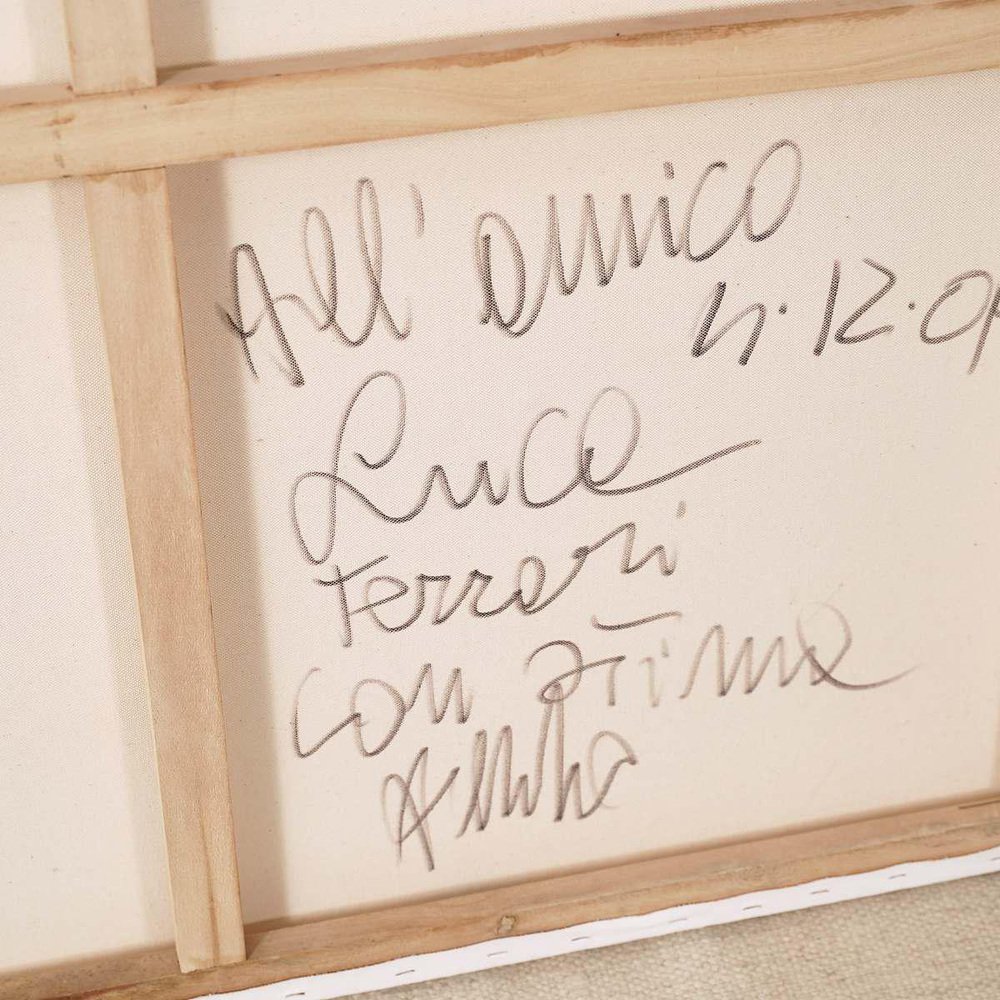 All' amico
4.12.0
Luca
Ferrari
con stima